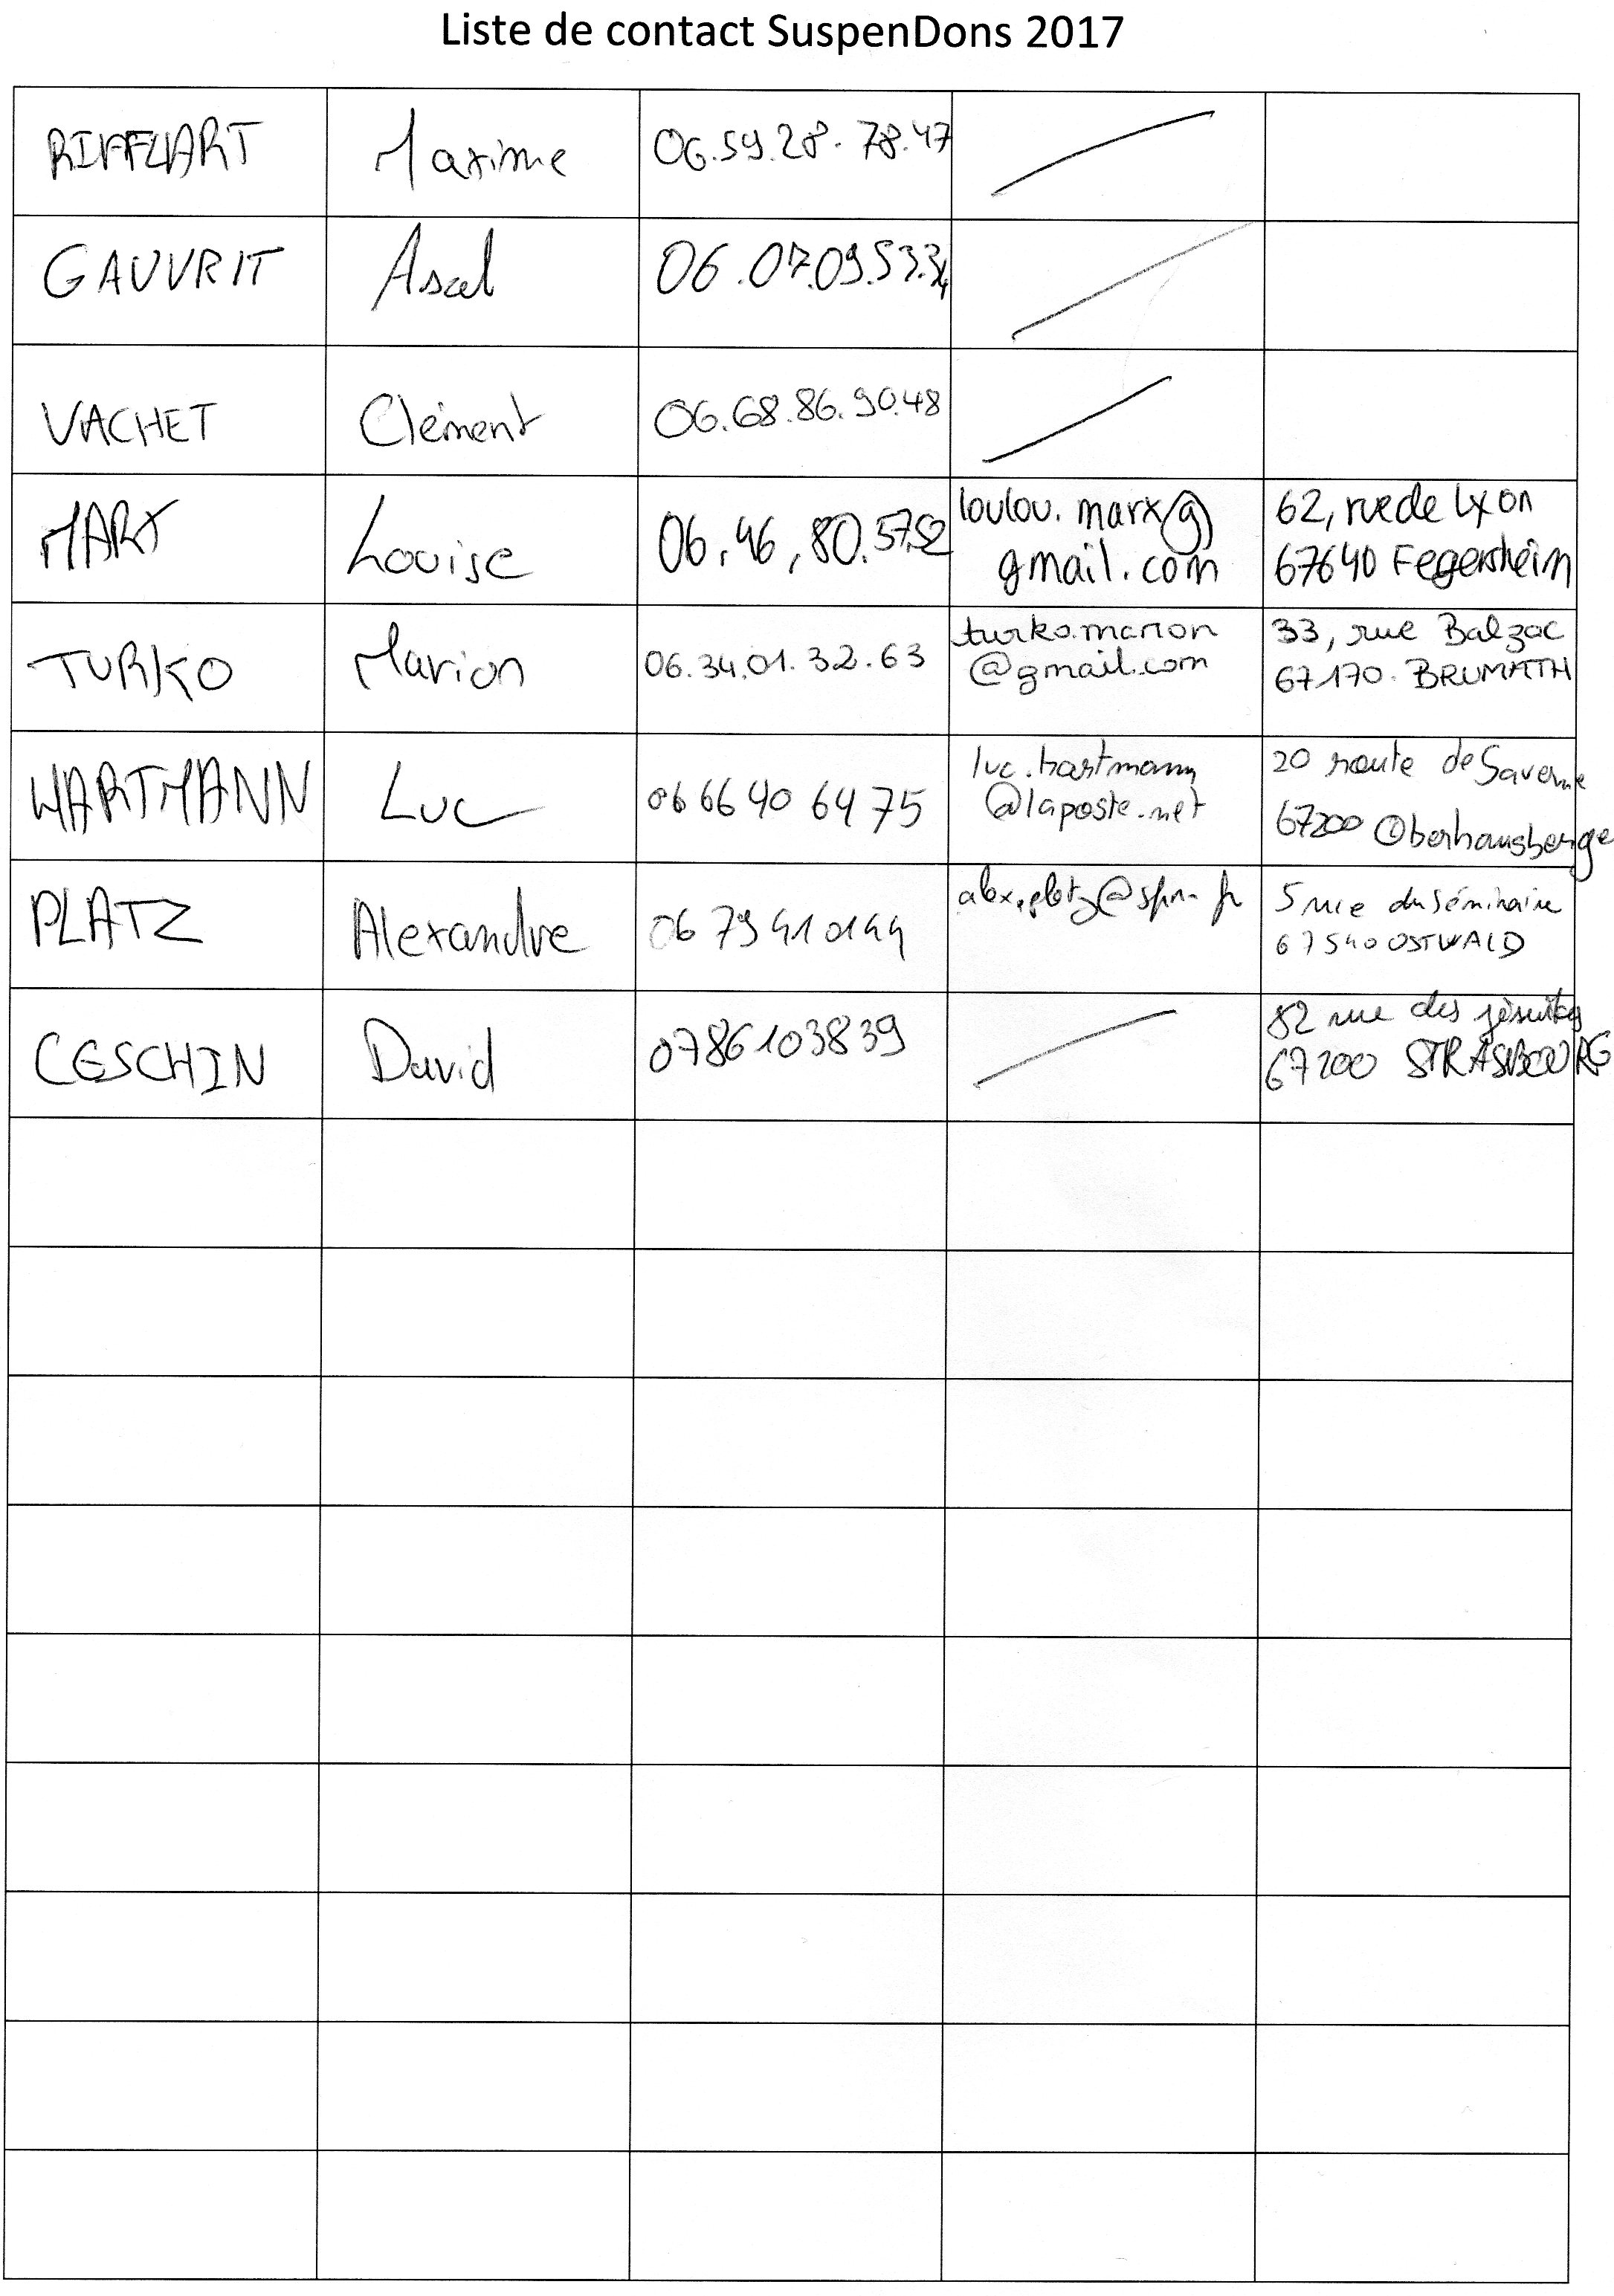 Liste de contact SuspenDons 2017
RIFFLART Maxime 06.59.28.78.47
GAUVRIT Axel 06.07.09.53.34
VACHET Clément 06.68.86.90.48
MARX Louise 06.46.80.57.52 loulou.marx@ 62, rue de Lyon
gmail.com 67640 Fegersheim
TURKO Marion 06.34.01.32.63 turko.marion 33, rue Balzac
@gmail.com 67170 BRUMATH
HARTMANN Luc 06 66 40 64 75 luc.hartmann 20 route de Saverne
@laposte.net 67200 Oberhausberge
PLATZ Alexandre 06 79 41 01 44 alex.platz@sfr.fr 5 rue du Séminaire
67540 OSTWALD
CESCHIN David 0786103839 82 rue des jésuites
67200 STRASBOURG